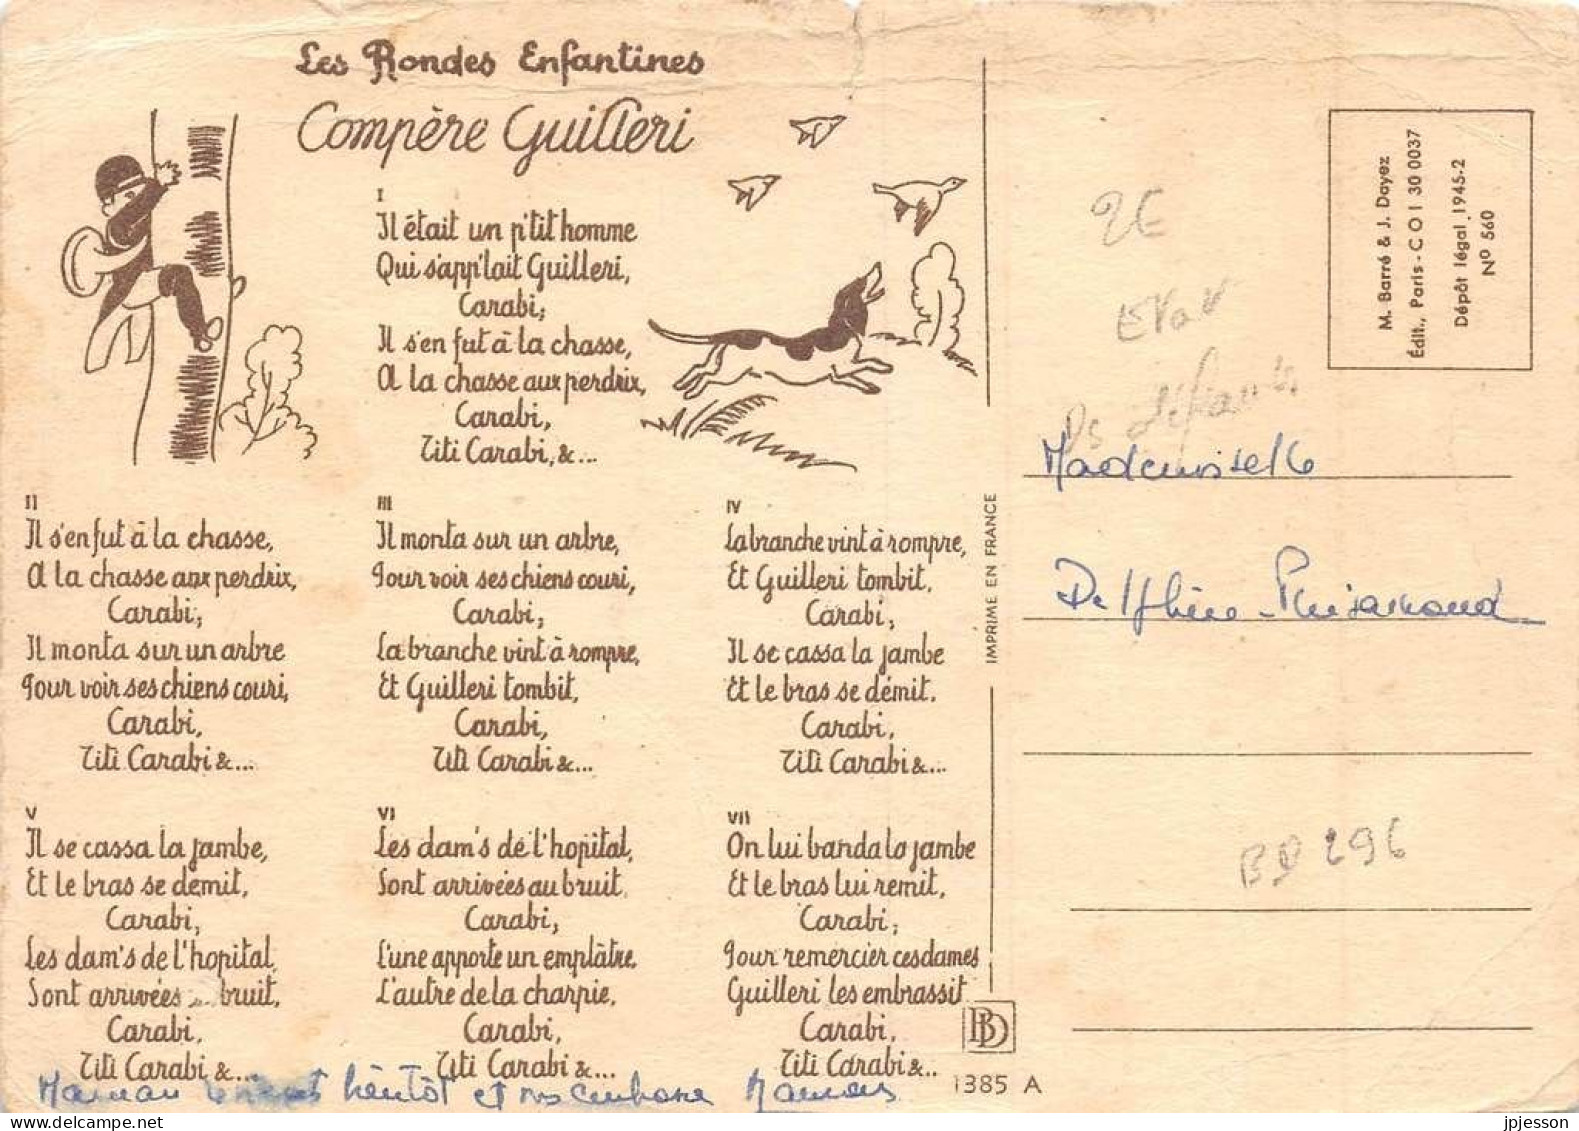 Les Rondes Enfantines
Compère Guilleri
I
Il était un p'tit homme
Qui s'app'lait Guilleri,
Carabi;
Il s'en fut à la chasse,
A la chasse aux perdrix,
Carabi,
Titi Carabi, &...
II
Il s'en fut à la chasse,
A la chasse aux perdrix,
Carabi;
Il monta sur un arbre
Pour voir ses chiens couri,
Carabi,
Titi Carabi &...
III
Il monta sur un arbre,
Pour voir ses chiens couri,
Carabi;
La branche vint à rompre,
Et Guilleri tombit,
Carabi,
Titi Carabi &...
IV
La branche vint à rompre,
Et Guilleri tombit,
Carabi;
Il se cassa la jambe
Et le bras se démit,
Carabi,
Titi Carabi &...
V
Il se cassa la jambe,
Et le bras se démit,
Carabi;
Les dam's de l'hopital,
Sont arrivées bruit,
Carabi,
Titi Carabi &...
VI
Les dam's de l'hopital,
Sont arrivées au bruit,
Carabi;
L'une apporte un emplâtre,
L'autre de la charpie,
Carabi,
Titi Carabi &...
VII
On lui banda la jambe
Et le bras lui remit,
Carabi;
Pour remercier ces dames
Guilleri les embrassit
Carabi,
Titi Carabi &..
Maman vient bientôt et vs embrasse
BD
1385 A
IMPRIME EN FRANCE
M. Barré & J. Dayez
Édit., Paris - C O I 30 0037
Dépôt légal 1945-2
Nº 560
2E
Ds
Mademoiselle
Delphine
BD 296
jpjesson